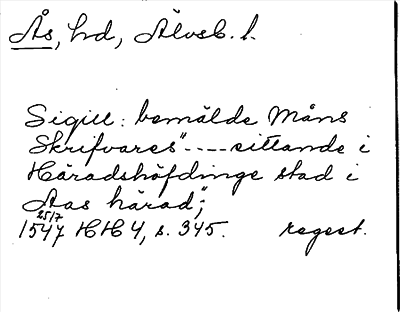 Ås, hd, Älvsb. l.
Sigill: bemälde Måns
Skrifvares" ---- sittande i
Häradshöfdinge stad i
Aas härad";
25/7
1547 HH 4, s. 345. regest.